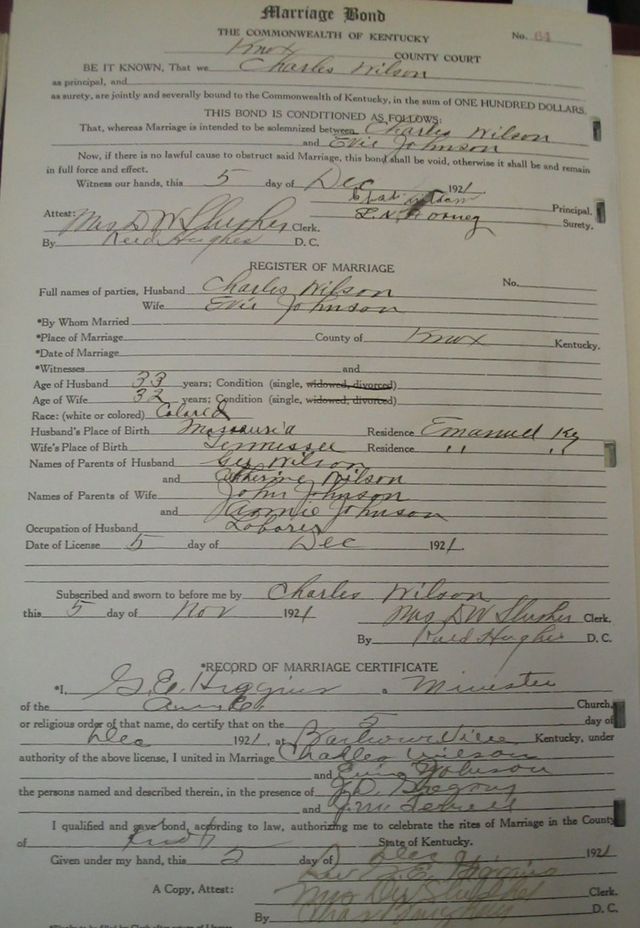 Marriage Bond
THE COMMONWEALTH OF KENTUCKY No. 64
Knox COUNTY COURT
BE IT KNOWN, That we Charles Wilson
as principal, and
as surety, are jointly and severally bound to the Commonwealth of Kentucky, in the sum of ONE HUNDRED DOLLARS.
THIS BOND IS CONDITIONED AS FOLLOWS:
That, whereas Marriage is intended to be solemnized between Charles Wilson
and Evie Johnson
Now, if there is no lawful cause to obstruct said Marriage, this bond shall be void, otherwise it shall be and remain
in full force and effect.
Witness our hands, this 5 day of Dec 1921.
Principal.
Attest: Mrs D W Slusher Clerk. Surety.
By Reed Hughes D. C.
REGISTER OF MARRIAGE
Full names of parties, Husband Charles Wilson No.
Wife Evie Johnson
*By Whom Married
*Place of Marriage County of Knox Kentucky.
*Date of Marriage
*Witnesses and
Age of Husband 33 years; Condition (single, widowed, divorced)
Age of Wife 32 years; Condition (single, widowed, divorced)
Race: (white or colored) Colored
Husband's Place of Birth Residence Emanuel Ky
Wife's Place of Birth Tennessee Residence " "
Names of Parents of Husband Wilson
and Wilson
Names of Parents of Wife John Johnson
and Johnson
Occupation of Husband Laborer
Date of License 5 day of Dec 1921.
Subscribed and sworn to before me by Charles Wilson
this 5 day of Nov 1921 Mrs D W Slusher Clerk.
By Reed Hughes D. C.
*RECORD OF MARRIAGE CERTIFICATE
*I, G. E. Higgins a Minister
of the Church,
or religious order of that name, do certify that on the 5 day of
Dec 1921, at Barbourville Kentucky, under
authority of the above license, I united in Marriage Charles Wilson
and Johnson
the persons named and described therein, in the presence of
and
I qualified and gave bond, according to law, authorizing me to celebrate the rites of Marriage in the County
of Knox State of Kentucky.
Given under my hand, this 5 day of Dec 1921
A Copy, Attest: Mrs D W Slusher Clerk.
By D. C.